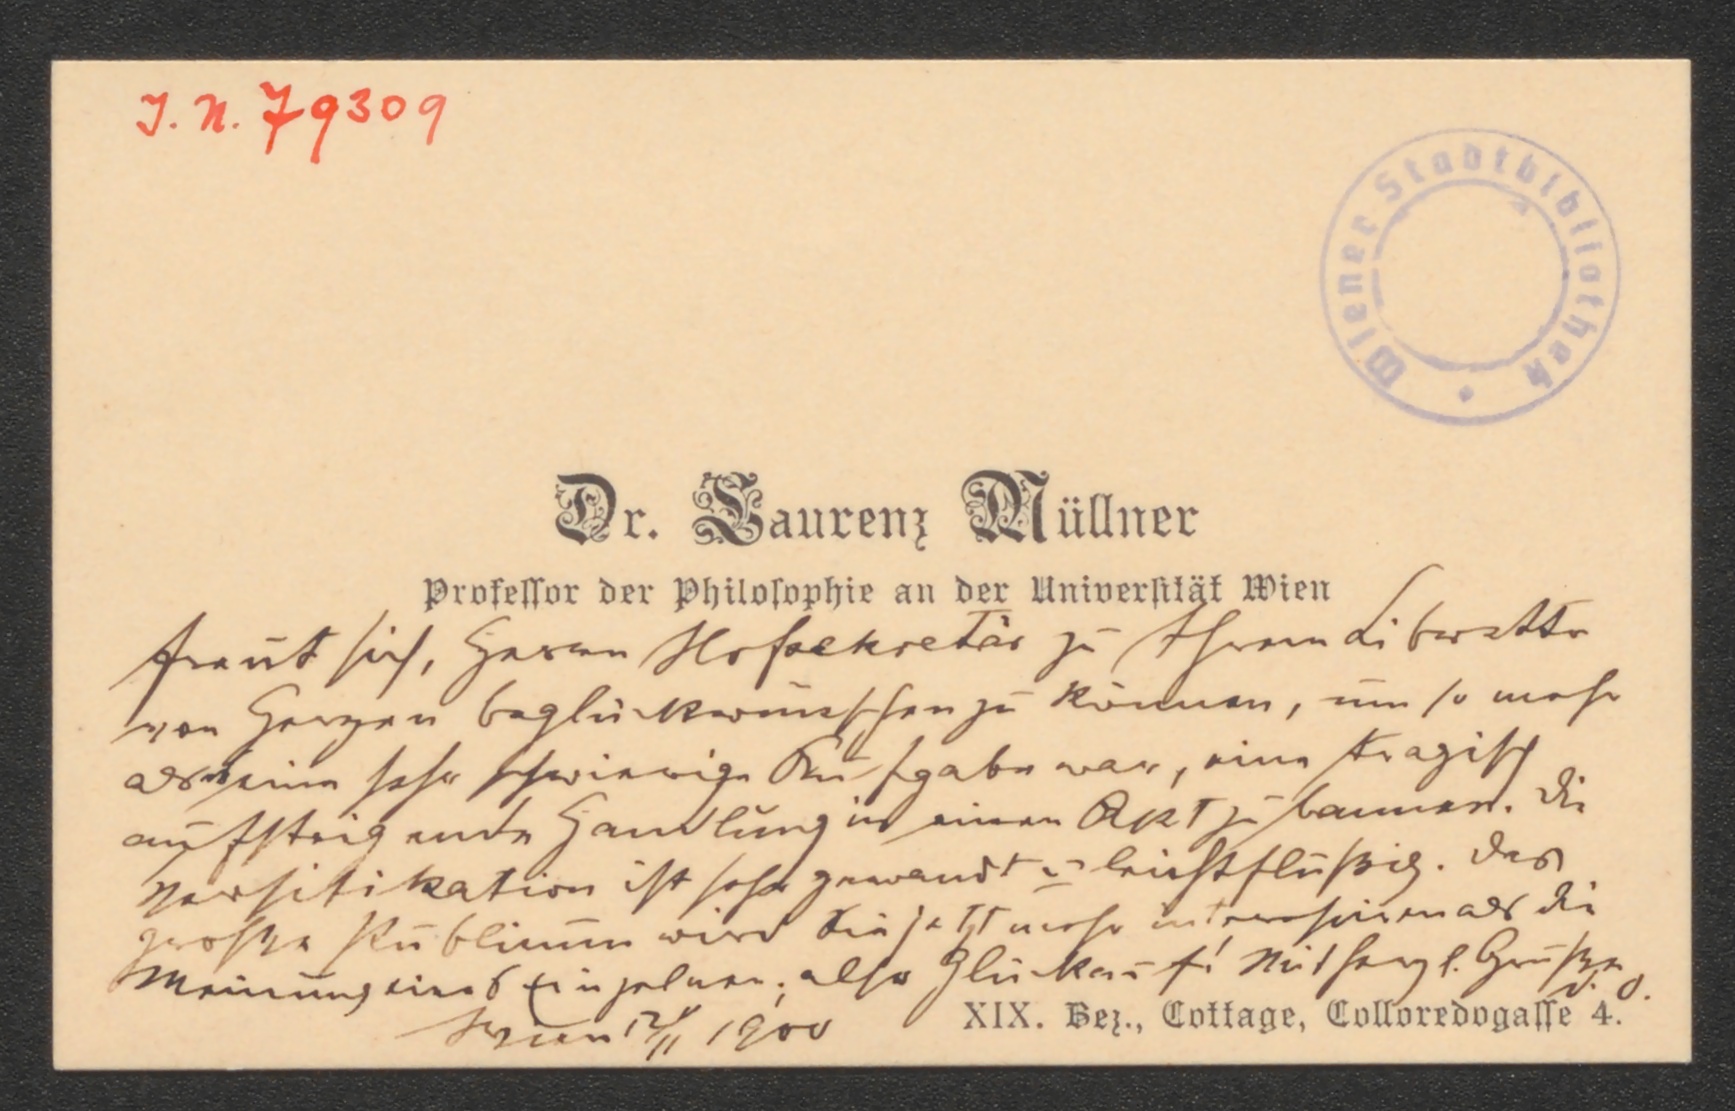 J. N. 79309
Wiener Stadtbibliothek
Dr. Laurenz Müllner
Professor der Philosophie an der Universität Wien
freut sich, Herrn Hofsekretär zu Ihrem Libretto
von Herzen beglückwünschen zu können, um so mehr
als eine sehr schwierige Aufgabe war, eine tragisch
aufsteigende Handlung in einen Akt zu bannen. Die
Versifikation ist sehr gewandt u leichtflüßig. Das
große Publicum wird Sie jetzt mehr interessiren als die
Meinung eines Einzelnen; also Glückauf! Mit herzl. Grüßen
d. O.
Wien 1900
XIX. Bez., Cottage, Colloredogasse 4.